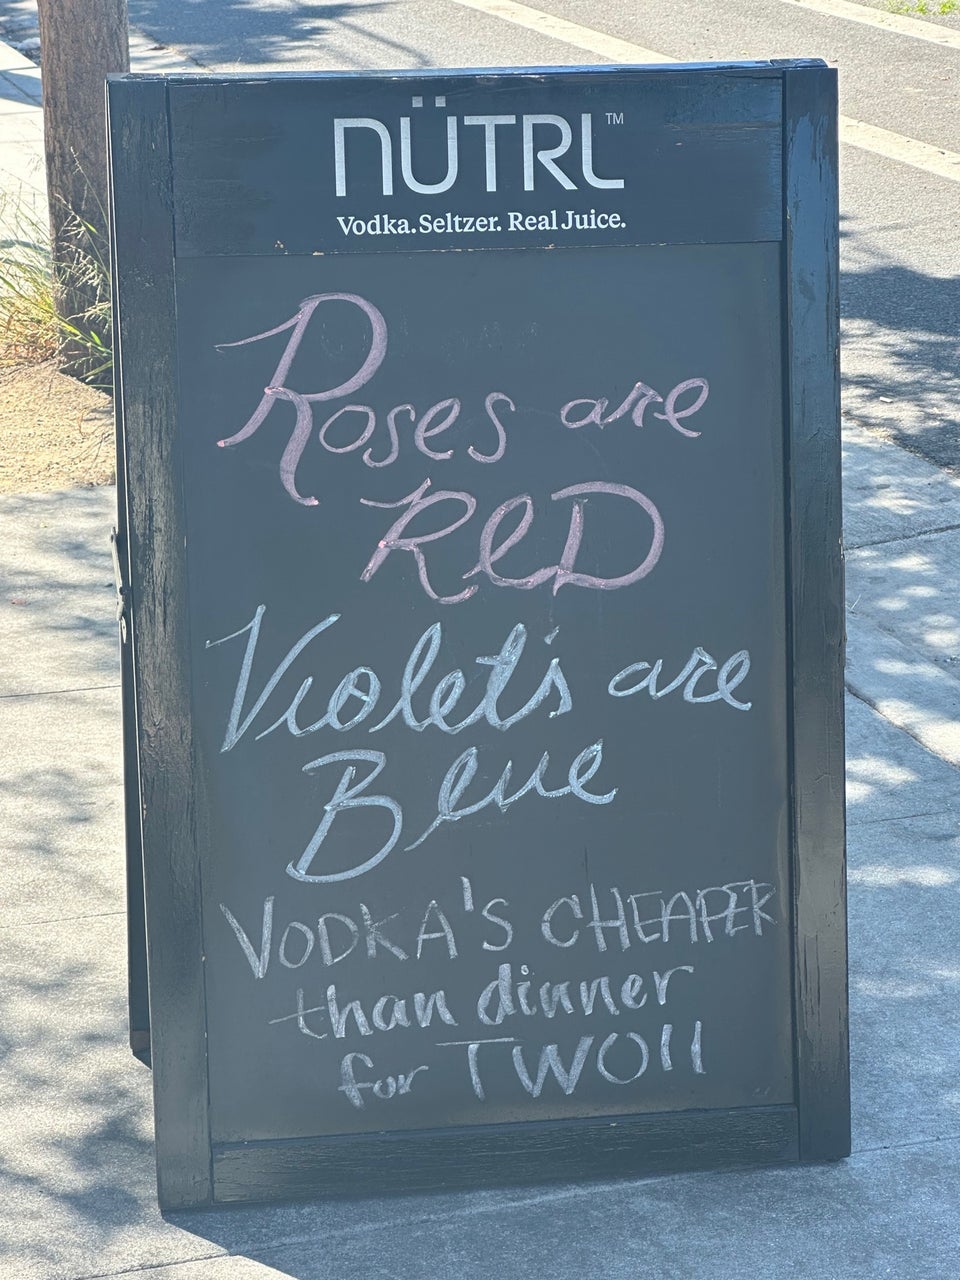 NÜTRL™
Vodka. Seltzer. Real Juice.
Roses are
RED
Violet's are
Blue
VODKA'S CHEAPER
than dinner
for TWO!!